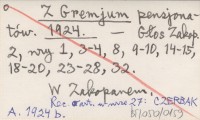 Z Gremjum pensjona-
tów. 1924. — Głos Zakop.
2, nry 1, 3-4, 8, 9-10, 14-15,
18-20, 23-28, 32.
W Zakopanem.
Rec. w nrze 27: CZERBAK
A. 1924 b.